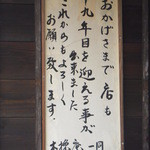 おかげさまで店も
十九年目を迎える事が
出来ました
これからもよろしく
お願い致します。
一同